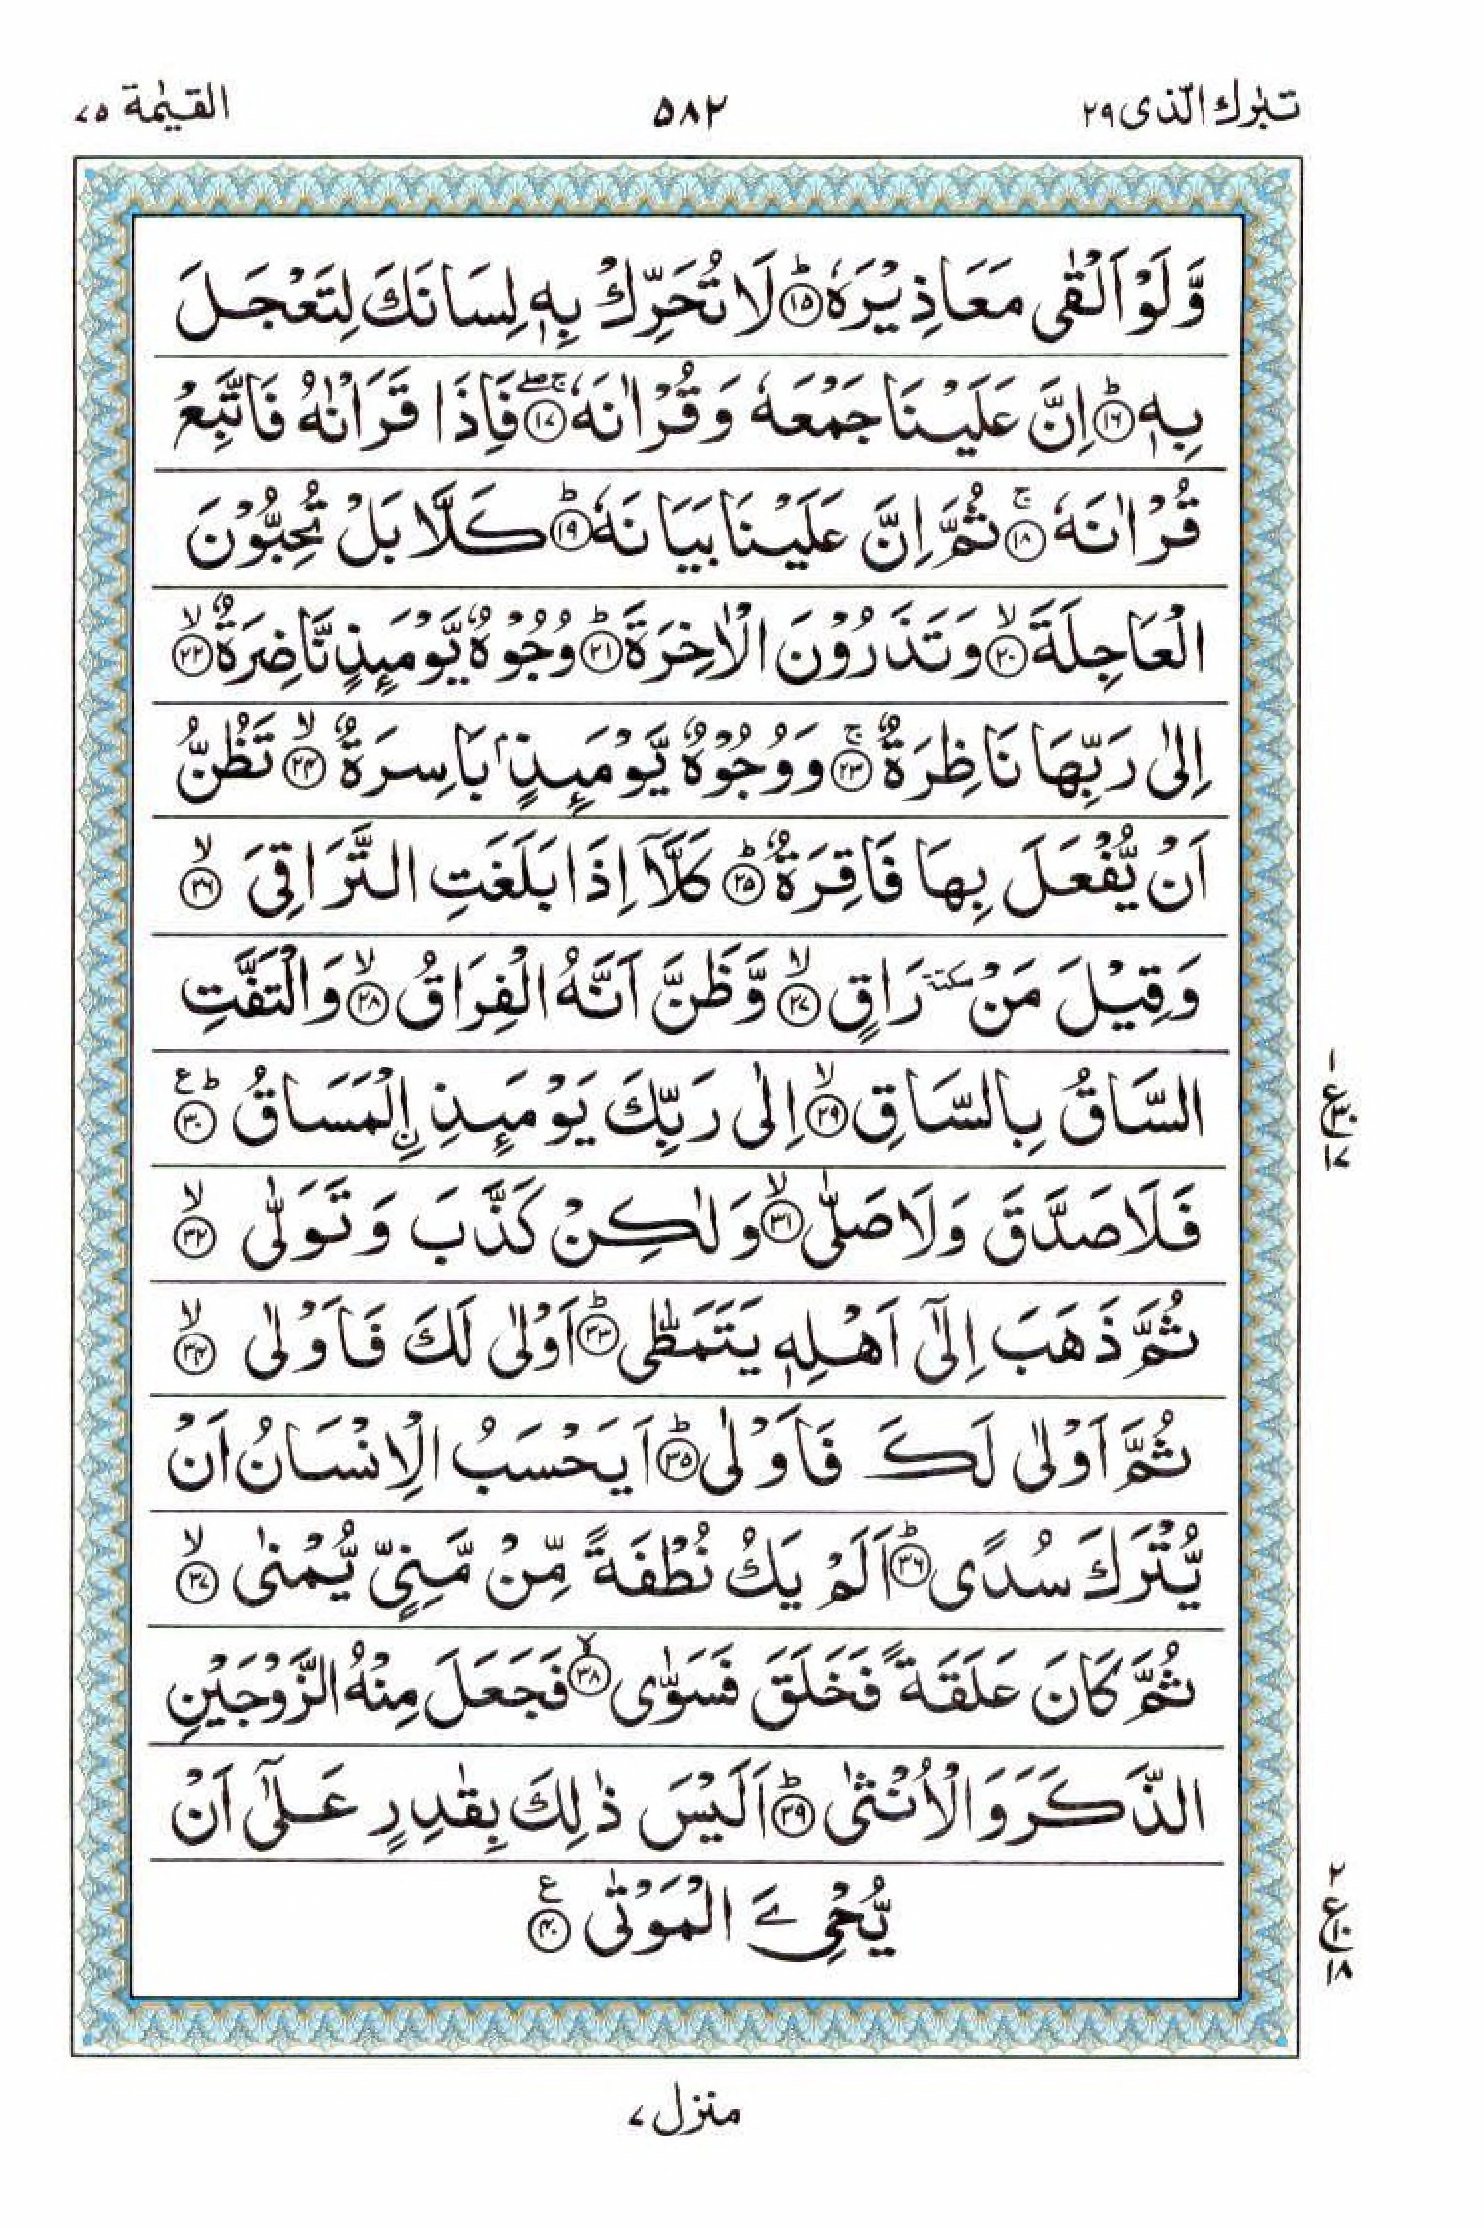 تبٰرك الّذی ۲۹
۵۸۲
القیٰمة ۷۵
وَّلَوْ اَلْقٰى مَعَاذِيْرَهٗ ؕ﴿۱۵﴾ لَا تُحَرِّكْ بِهٖ لِسَانَكَ لِتَعْجَلَ
بِهٖ ؕ﴿۱۶﴾ اِنَّ عَلَيْنَا جَمْعَهٗ وَ قُرْاٰنَهٗ ۚۖ﴿۱۷﴾ فَاِذَا قَرَاْنٰهُ فَاتَّبِعْ
قُرْاٰنَهٗ ۚ﴿۱۸﴾ ثُمَّ اِنَّ عَلَيْنَا بَيَانَهٗ ؕ﴿۱۹﴾ كَلَّا بَلْ تُحِبُّوْنَ
الْعَاجِلَةَ ۙ﴿۲۰﴾ وَ تَذَرُوْنَ الْاٰخِرَةَ ؕ﴿۲۱﴾ وُجُوْهٌ يَّوْمَىِٕذٍ نَّاضِرَةٌ ۙ﴿۲۲﴾
اِلٰى رَبِّهَا نَاظِرَةٌ ۚ﴿۲۳﴾ وَ وُجُوْهٌ يَّوْمَىِٕذٍۭ بَاسِرَةٌ ۙ﴿۲۴﴾ تَظُنُّ
اَنْ يُّفْعَلَ بِهَا فَاقِرَةٌ ؕ﴿۲۵﴾ كَلَّاۤ اِذَا بَلَغَتِ التَّرَاقِيَ ۙ﴿۲۶﴾
وَ قِيْلَ مَنْ سكتة رَاقٍ ۙ﴿۲۷﴾ وَّ ظَنَّ اَنَّهُ الْفِرَاقُ ۙ﴿۲۸﴾ وَ الْتَفَّتِ
السَّاقُ بِالسَّاقِ ۙ﴿۲۹﴾ اِلٰى رَبِّكَ يَوْمَىِٕذِ ِ۟الْمَسَاقُ ؕ۠﴿۳۰﴾
۱ ع ۳۰ ۱۷
فَلَا صَدَّقَ وَ لَا صَلّٰى ۙ﴿۳۱﴾ وَ لٰكِنْ كَذَّبَ وَ تَوَلّٰى ۙ﴿۳۲﴾
ثُمَّ ذَهَبَ اِلٰۤى اَهْلِهٖ يَتَمَطّٰى ؕ﴿۳۳﴾ اَوْلٰى لَكَ فَاَوْلٰى ۙ﴿۳۴﴾
ثُمَّ اَوْلٰى لَكَ فَاَوْلٰى ؕ﴿۳۵﴾ اَيَحْسَبُ الْاِنْسَانُ اَنْ
يُّتْرَكَ سُدًى ؕ﴿۳۶﴾ اَلَمْ يَكُ نُطْفَةً مِّنْ مَّنِيٍّ يُّمْنٰى ۙ﴿۳۷﴾
ثُمَّ كَانَ عَلَقَةً فَخَلَقَ فَسَوّٰى ۙ﴿۳۸﴾ فَجَعَلَ مِنْهُ الزَّوْجَيْنِ
الذَّكَرَ وَ الْاُنْثٰى ؕ﴿۳۹﴾ اَلَيْسَ ذٰلِكَ بِقٰدِرٍ عَلٰۤى اَنْ
يُّحْيِۦَ الْمَوْتٰى ۠﴿۴۰﴾
۲ ع ۱۰ ۱۸
منزل ۷